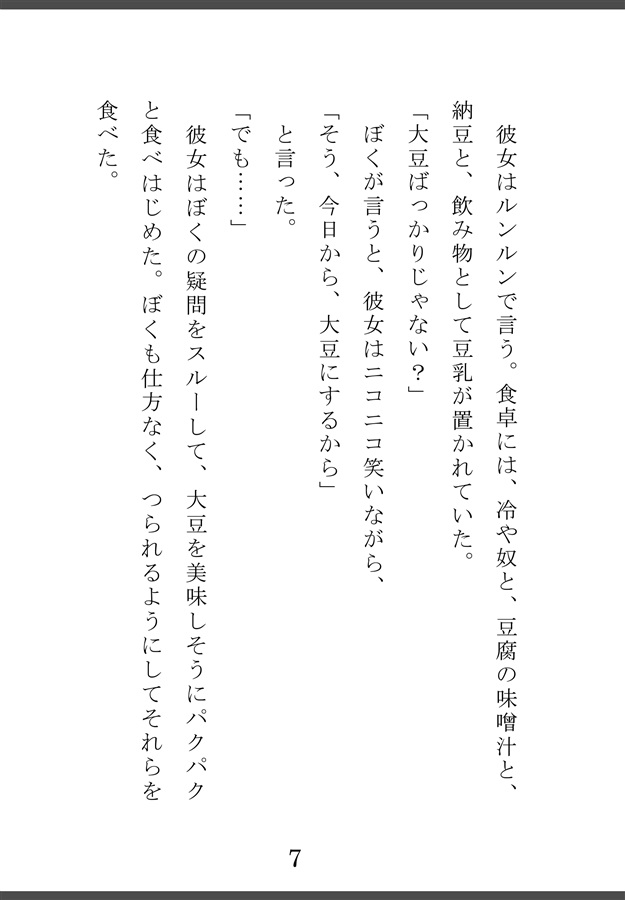 彼女はルンルンで言う。食卓には、冷や奴と、豆腐の味噌汁と、
納豆と、飲み物として豆乳が置かれていた。
「大豆ばっかりじゃない？」
　ぼくが言うと、彼女はニコニコ笑いながら、
「そう、今日から、大豆にするから」
　と言った。
「でも……」
　彼女はぼくの疑問をスルーして、大豆を美味しそうにパクパク
と食べはじめた。ぼくも仕方なく、つられるようにしてそれらを
食べた。
7